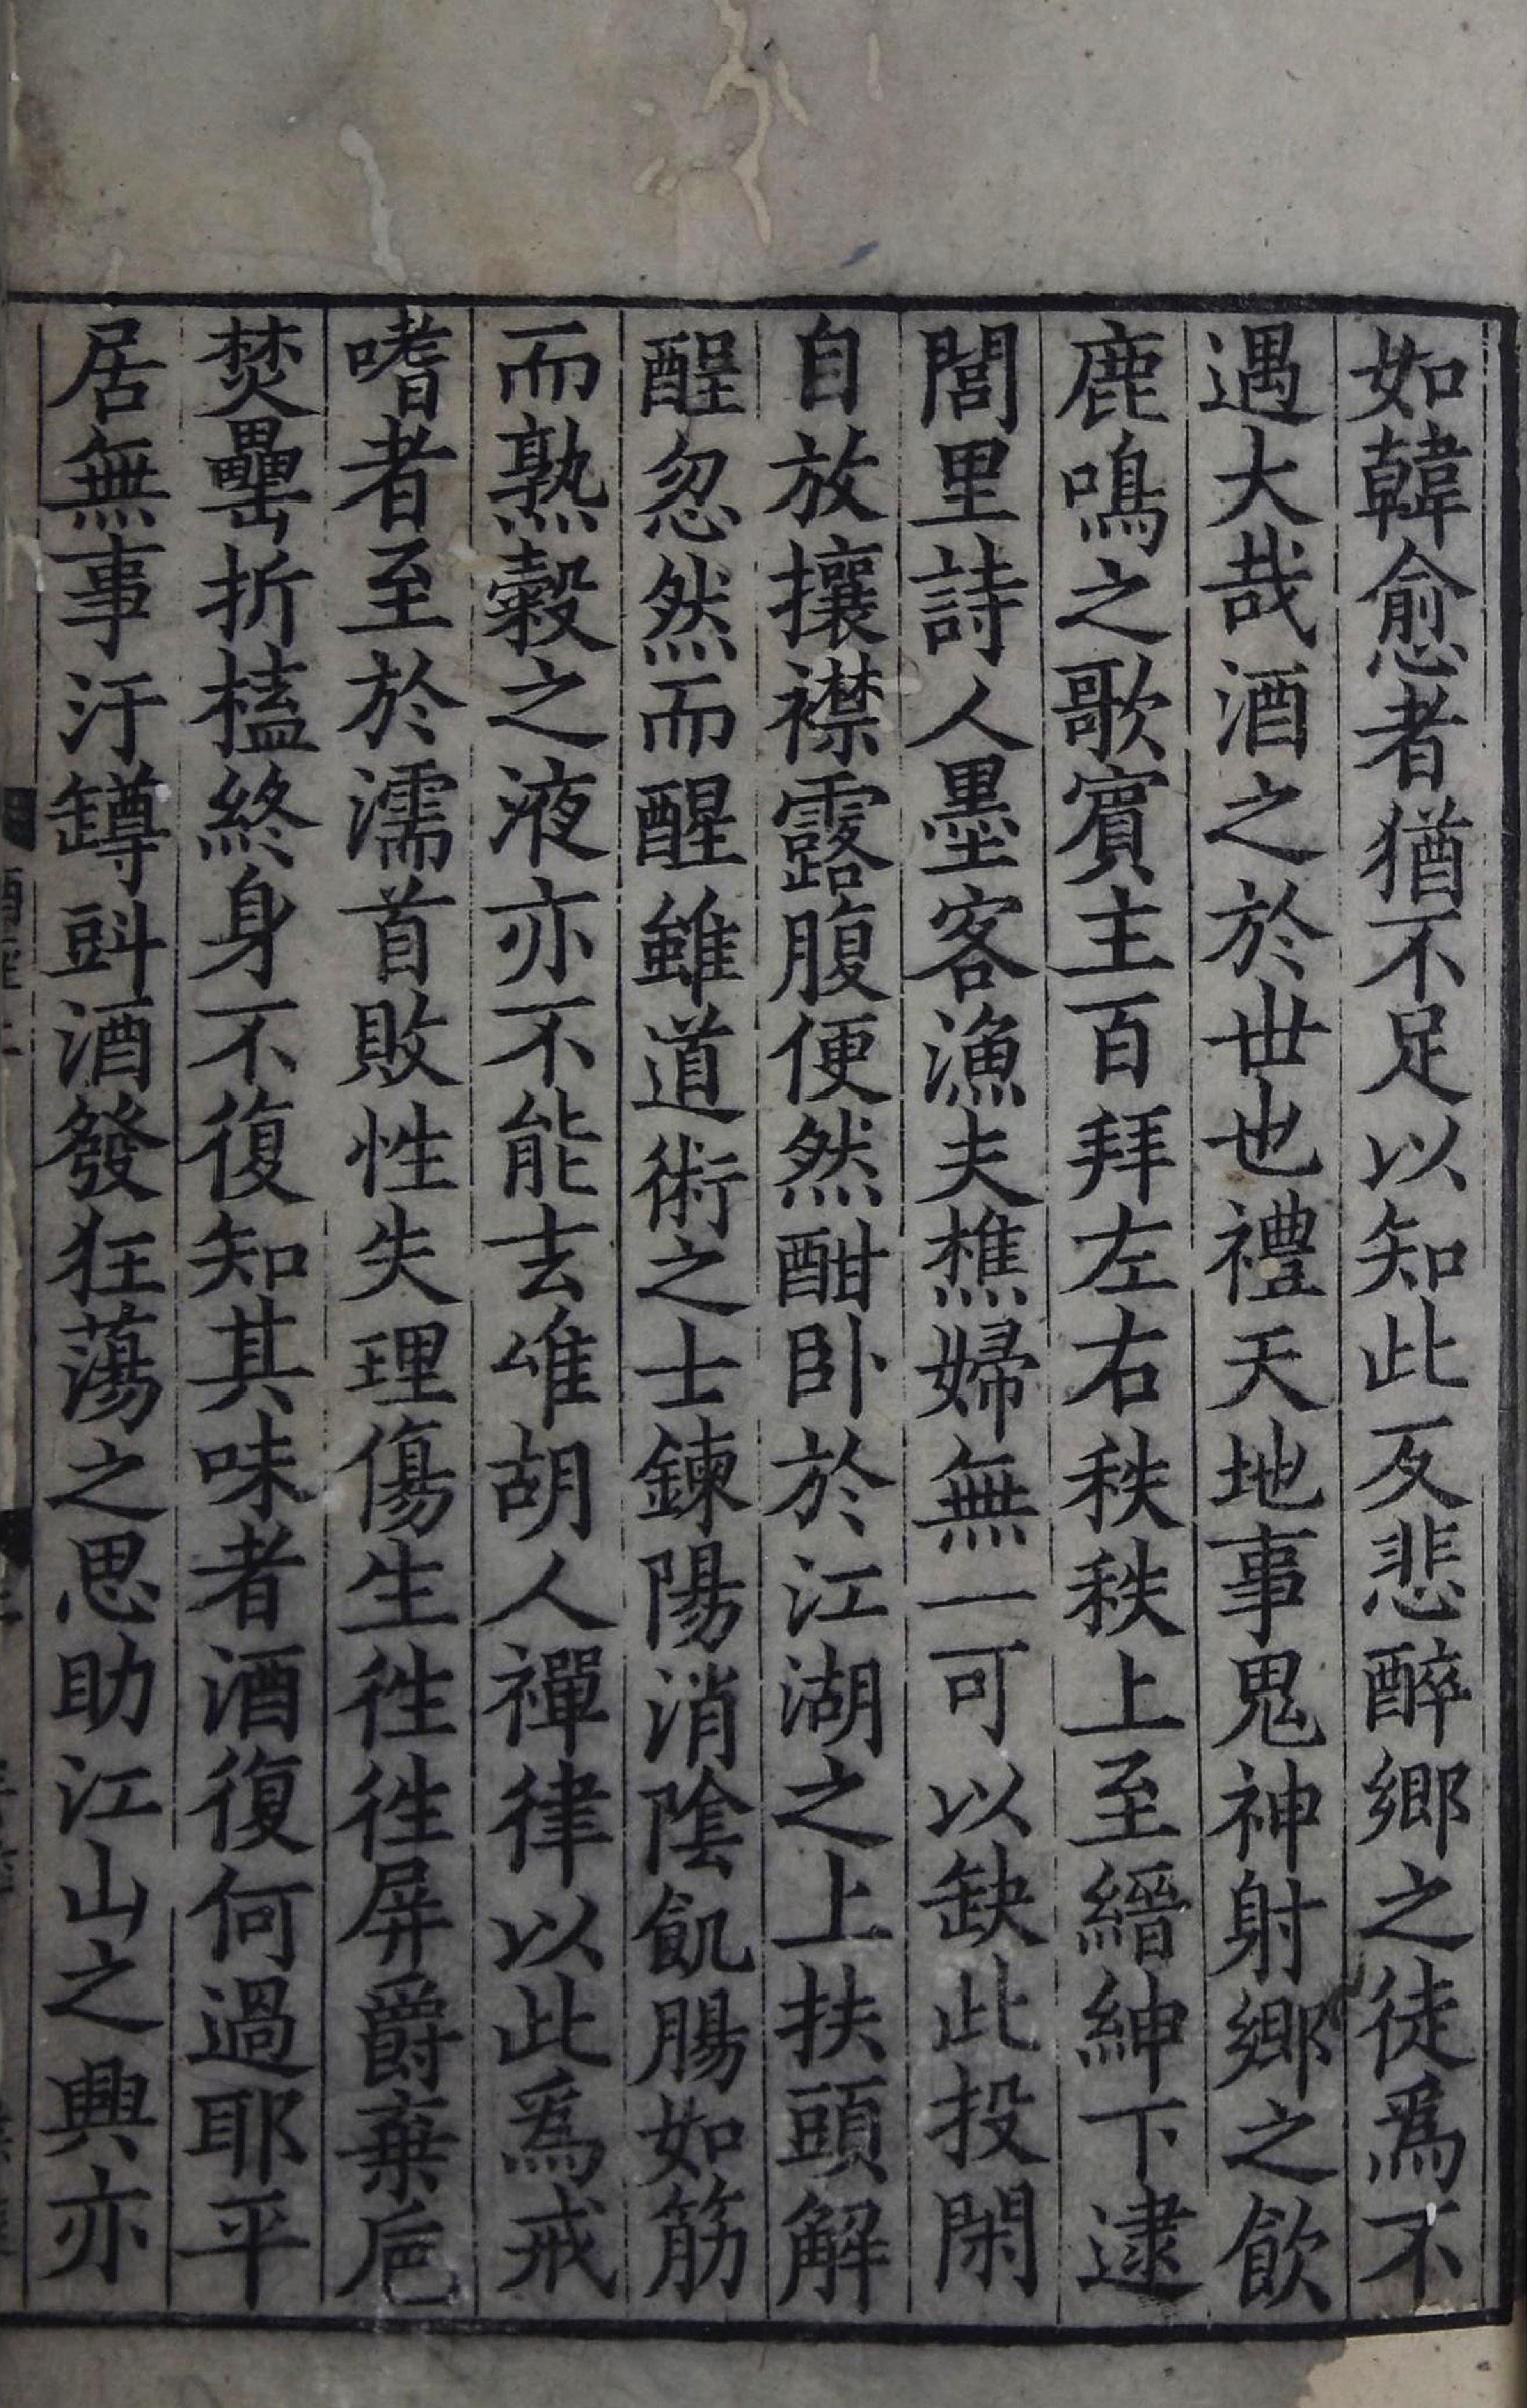 如韓愈者猶不足以知此反悲醉鄉之徒爲不
遇大哉酒之於世也禮天地事鬼神射鄉之飲
鹿鳴之歌賔主百拜左右秩秩上至縉紳下逮
閭里詩人墨客漁夫樵婦無一可以缺此投閑
自放攘襟露腹便然酣卧於江湖之上扶頭解
酲忽然而醒雖道術之士鍊陽消隂飢腸如筋
而熟糓之液亦不能去唯胡人禪律以此爲戒
嗜者至於濡首敗性失理傷生徃徃屏爵棄卮
焚罍折榼終身不復知其味者酒復何過耶平
居無事汙罇㪷酒發狂蕩之思助江山之興亦